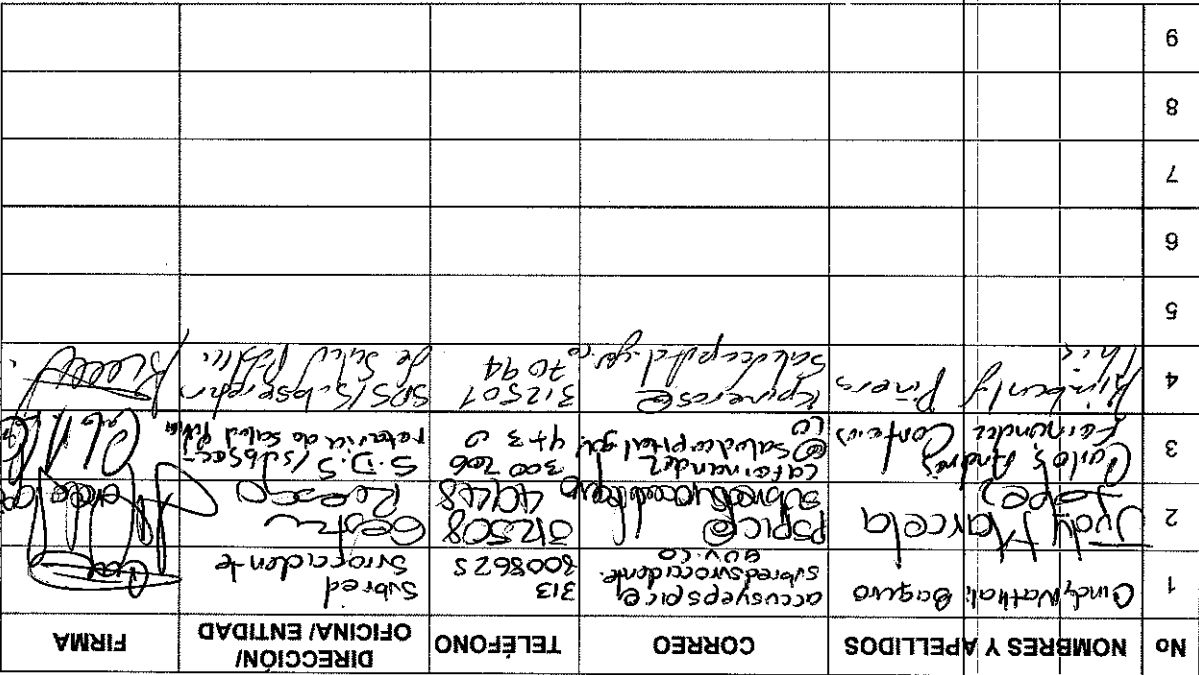 No NOMBRES Y APELLIDOS CORREO TELÉFONO DIRECCIÓN/ OFICINA/ ENTIDAD FIRMA
1 Cindy Nathali Baquero accusyepspic@ subredsuroccidente. gov.co 313 8008625 Subred Suroccidente
2 Judy Marcela López pspic@ 312508 40448 Gestión Riesgo
3 Carlos Andrés Fernandez cafernandez @saludcapital.gov. co 300 206 4+3 0 S.D.S/subsec- retaria de Salud
4 Kimberly Piñeros kpineros@ saludcapital.gov.co 312501 7094 SDS/Subsecretar de Salud
5
6
7
8
9